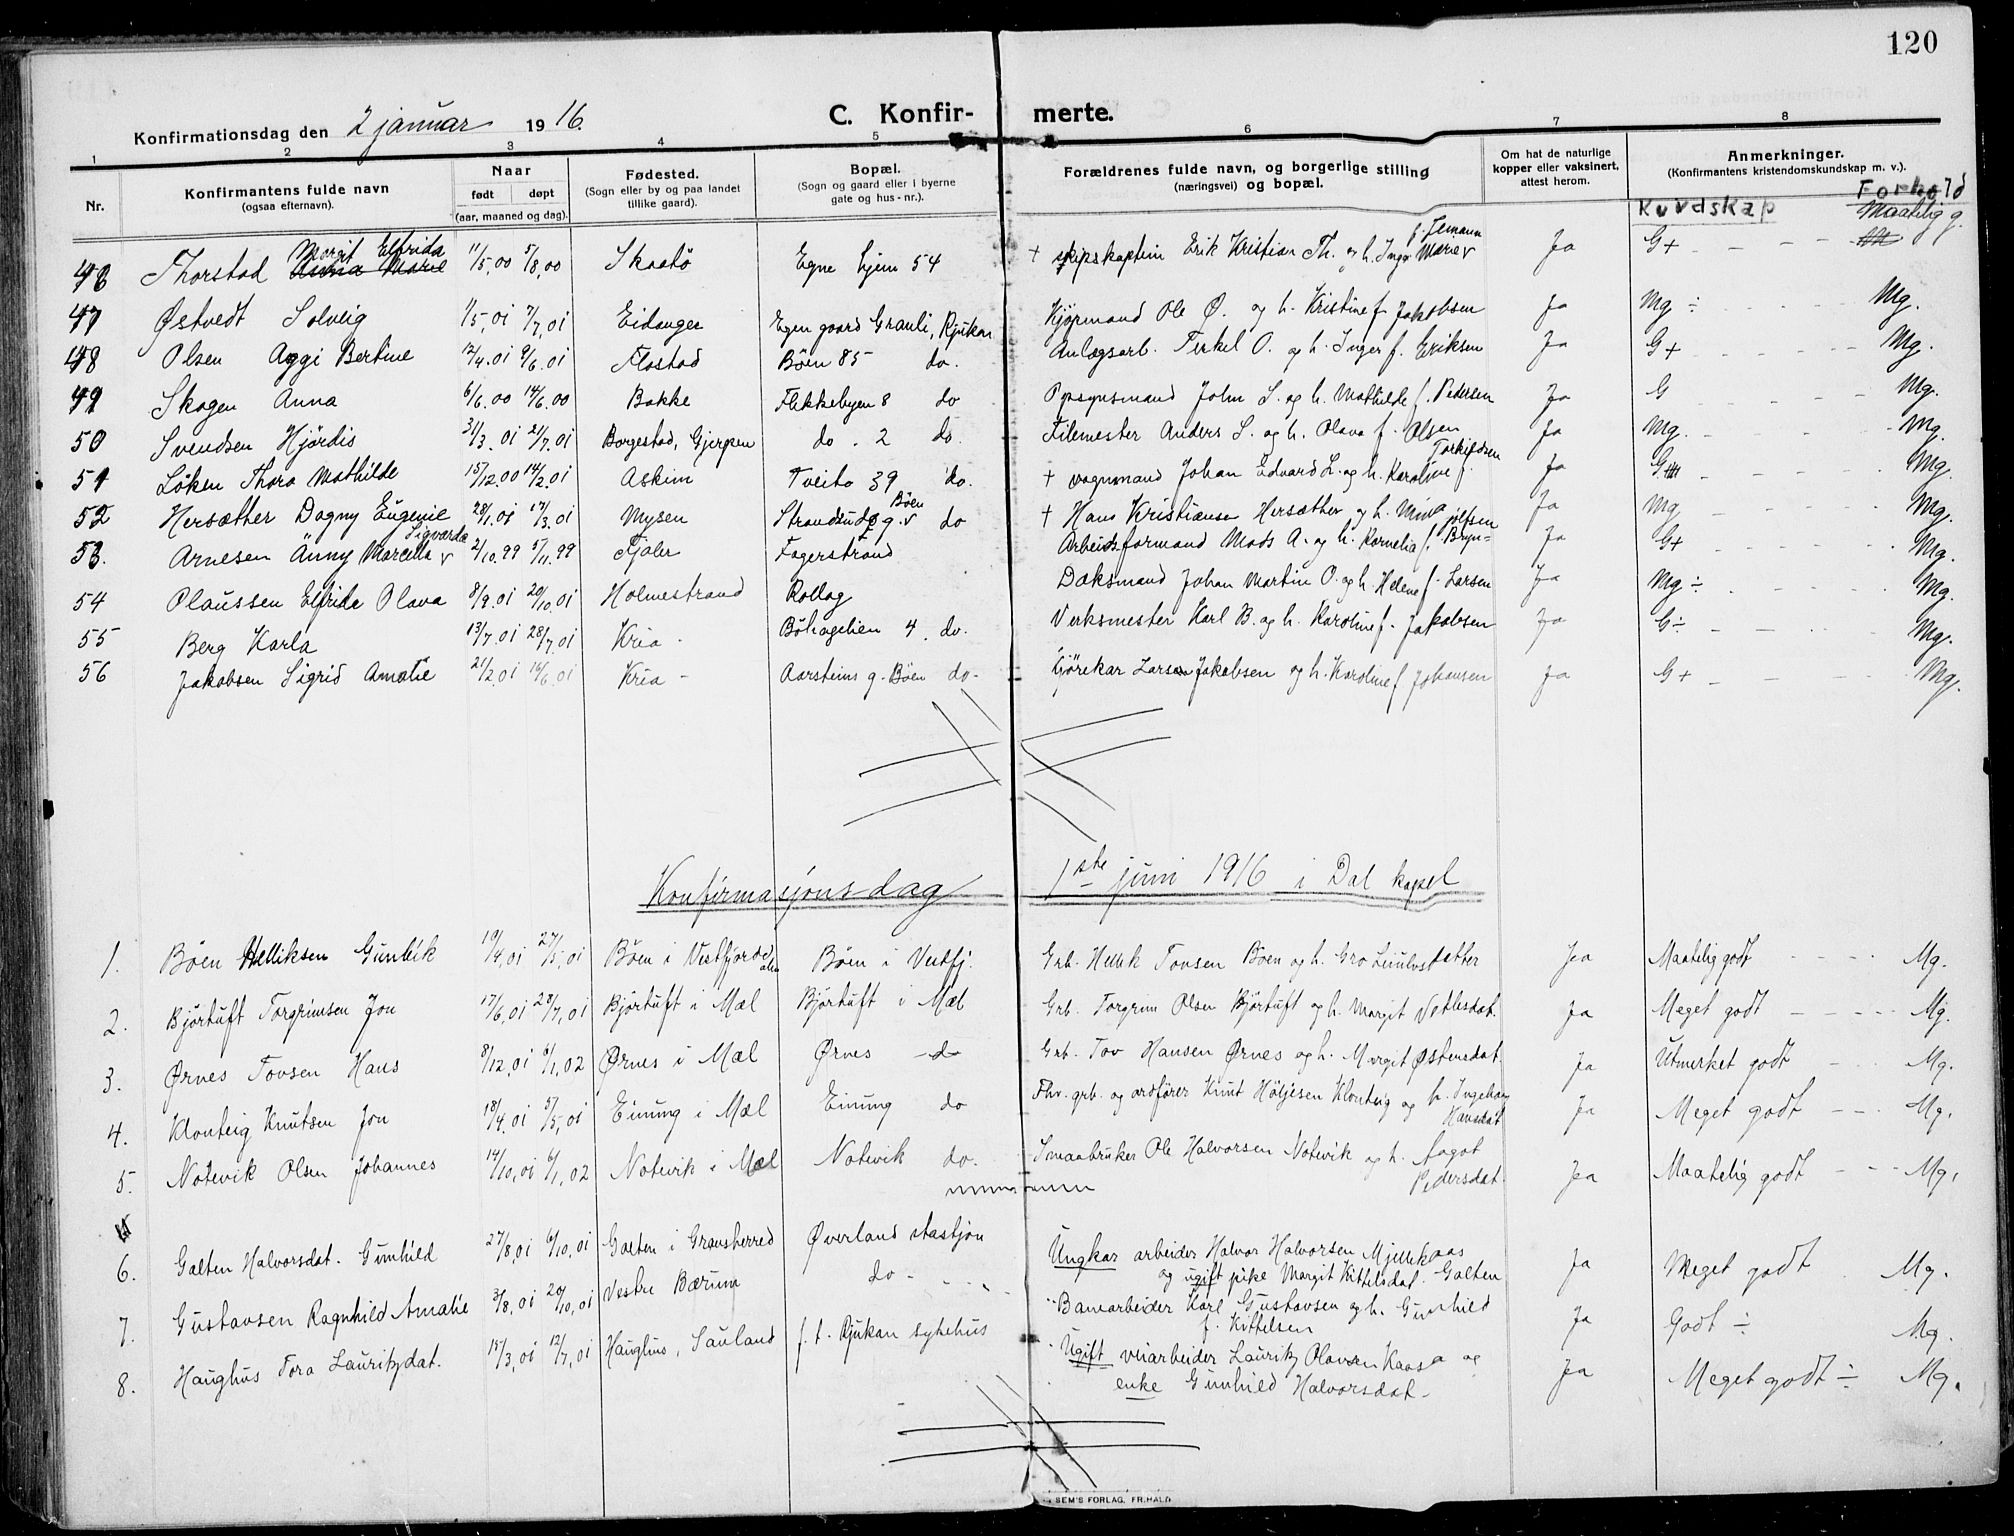 120
Konfirmationsdag den 2 januar 1916.
C. Konfirmerte.
1 2 3 4 5 6 7 8
Nr.
Konfirmantens fulde navn
(ogsaa efternavn).
Naar
født døpt
(aar, maaned og dag).
Fødested.
(Sogn eller by og paa landet
tillike gaard).
Bopæl.
(Sogn og gaard eller i byerne
gate og hus-nr.).
Forældrenes fulde navn, og borgerlige stilling
(næringsvei) og bopæl.
Om hat de naturlige
kopper eller vaksinert,
attest herom.
Anmerkninger.
(Konfirmantens kristendomskundskap m. v.).
Kundskap Forhold
Margit Elfrida
f. Jemann
Maatelig g.
46 Thorstad Anna Marie 11/5,00 5/8,00 Skaatö Egne hjem 54 + skipskaptein Erik Kristian Th. og h. Inga Marie v Ja G+
47 Østvedt Solveig 11/5,01 7/7,01 Eidanger Egen gaard Grauli, Rjukan Kjørmand Ole Ø. og h. Kristine f. Jakobsen Ja Mg ÷ Mg.
48 Olsen Aggi Bertine 12/4.01 9/6.01 Flostad Böen 85 do. Anlægsarb. Terkel O. og h. Inger f. Eriksen Ja G+ Mg.
49 Skogen Anna 6/6.00 14/6.00 Bakke Flekkebyen 8 do Opsynsmand John S. og h. Mathilde f. Pedersen Ja G Mg.
50 Svendsen Hjördis 31/3.01 21/7.01 Borgestad, Gjerpen do. 2 do. Filemester Anders S. og h. Olava f. Olsen Ja Mg. Mg.
Torkildsen
51 Löken Thora Mathilde 15/12.00 14/2.01 Askim Tveito 39 do. + vognmand Johan Edvard L. og h. Karoline f. Ja G Mg.
Böen
52 Hersæther Dagny Eugenie 28/1.01 17/3.01 Mysen Strandsundg. v do + Hans Kristiansen Hersæther og h. Mina Ja Mg Mg.
Sigvarda
jolfsen
53. Arnesen Änny Marcella v 2/10.99 5/11.99 Fjaler Fagerstrand Arbeidsformand Mads A. og h. Kornelia f. Bryn= Ja G+ Mg.
54 Olaussen Elfride Olava 8/9.01 20/10.01 Holmestrand Rollag Doksmand Johan Martin O. og h. Helene f. Larsen Ja Mg ÷ Mg.
55 Berg Karla 13/7.01 28/7.01 Kria. Böhagelien 4. do. Verksmester Karl B. og h. Karoline f. Jakobsen Ja G÷ Mg.
56 Jakobsen Sigrid Amalie 21/2.01 16/6.01 Kria - Aarsteins g. Böen do. Kjörekar Larsen Jakobsen og h. Karoline f. Johansen Ja G+ Mg.
Konfirmasjonsdag 1ste juni 1916 i Dal kapel
1. Böen Helliksen Gunleik 19/4,01 27/5,01 Böen i Vestfjorddalen Böen i Vestfj. Grb. Hellek Tovsen Böen og h. Gro Leiulvsdatter Ja Maatelig godt Mg.
2. Bjørtuft Torgrimsen Jon 17/6,01 28/7,01 Bjørtuft i Mæl Bjørtuft i Mæl Grb. Torgrim Olsen Bjørtuft og h. Margit Vetlesdat. Ja Meget godt Mg.
3. Ørnes Tovsen Hans 8/12,01 6/1,02 Ørnes i Mæl Ørnes do Grb. Tov Hansen Ørnes og h. Margit Østensdat. Ja Utmerket godt Mg.
4. Klonteig Knutsen Jon 18/4.01 5/5,01 Einung i Mæl Einung do Fhv. grb. og ordfører Knut Höljesen Klonteig og h. Ingeborg Ja Meget godt Mg.
Hansdat
5. Notevik Olsen Johannes 14/10,01 6/1,02 Notevik i Mæl Notevik do. Smaabruker Ole Halvorsen Notevik og h. Aagot Ja Maatelig godt Mg.
Pedersdat.
6. Galten Halvorsdat. Gunhild 27/8,01 6/10,01 Galten i Gransherred Øverland stasjon Ungkar arbeider Halvor Halvorsen Mjellekaas Ja Meget godt Mg.
og ugift pike Margit Kittelsdat. Galten
7. Gustavsen Ragnhild Amalie 3/8,01 20/10,01 Vestre Bærum do Banearbeider Karl Gustavsen og h. Gunhild Ja Godt ÷ Mg.
f. Kittelsen
8. Haughus Tora Lauritzdat. 15/3,01 12/7,01 Haughus, Sauland f. t. Rjukan sykehus Ugift veiarbeider Lauritz Olavsen Kaasa og Ja Meget godt ÷ Mg.
enke Gunhild Halvorsdat.
SEM'S FORLAG, FR.HALD